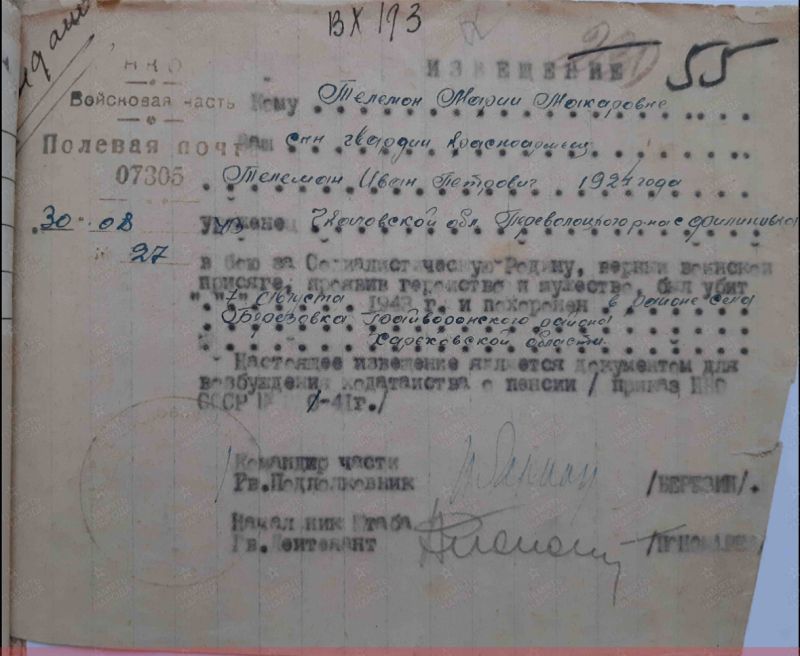 ВХ 193
55
НКО
ИЗВЕЩЕНИЕ
Войсковая часть
Кому Телемон Марии Макаровне
Полевая почт
07305
Ваш сын гвардии Красноармеец
Телеман Иван Петрович 1924 года
30 08
уроженец Чкаловской обл. Переволоцкого р-на с Филиповка
27
в бою за Социалистическую Родину, верный воинской
присяге, проявив геройство и мужество, был убит
"7" августа 1943 г. и похоронен в районе села
Березовка Грайворонского района
Харьковской области.
Настоящее извещение является документом для
возбуждения ходатайства о пенсии /приказ НКО
СССР № -41г./
Командир части
Гв.Подполковник /БЕРЕЗИН/.
Начальник Штаба
Гв.Лейтенант /ПОНОМАРЕВ/